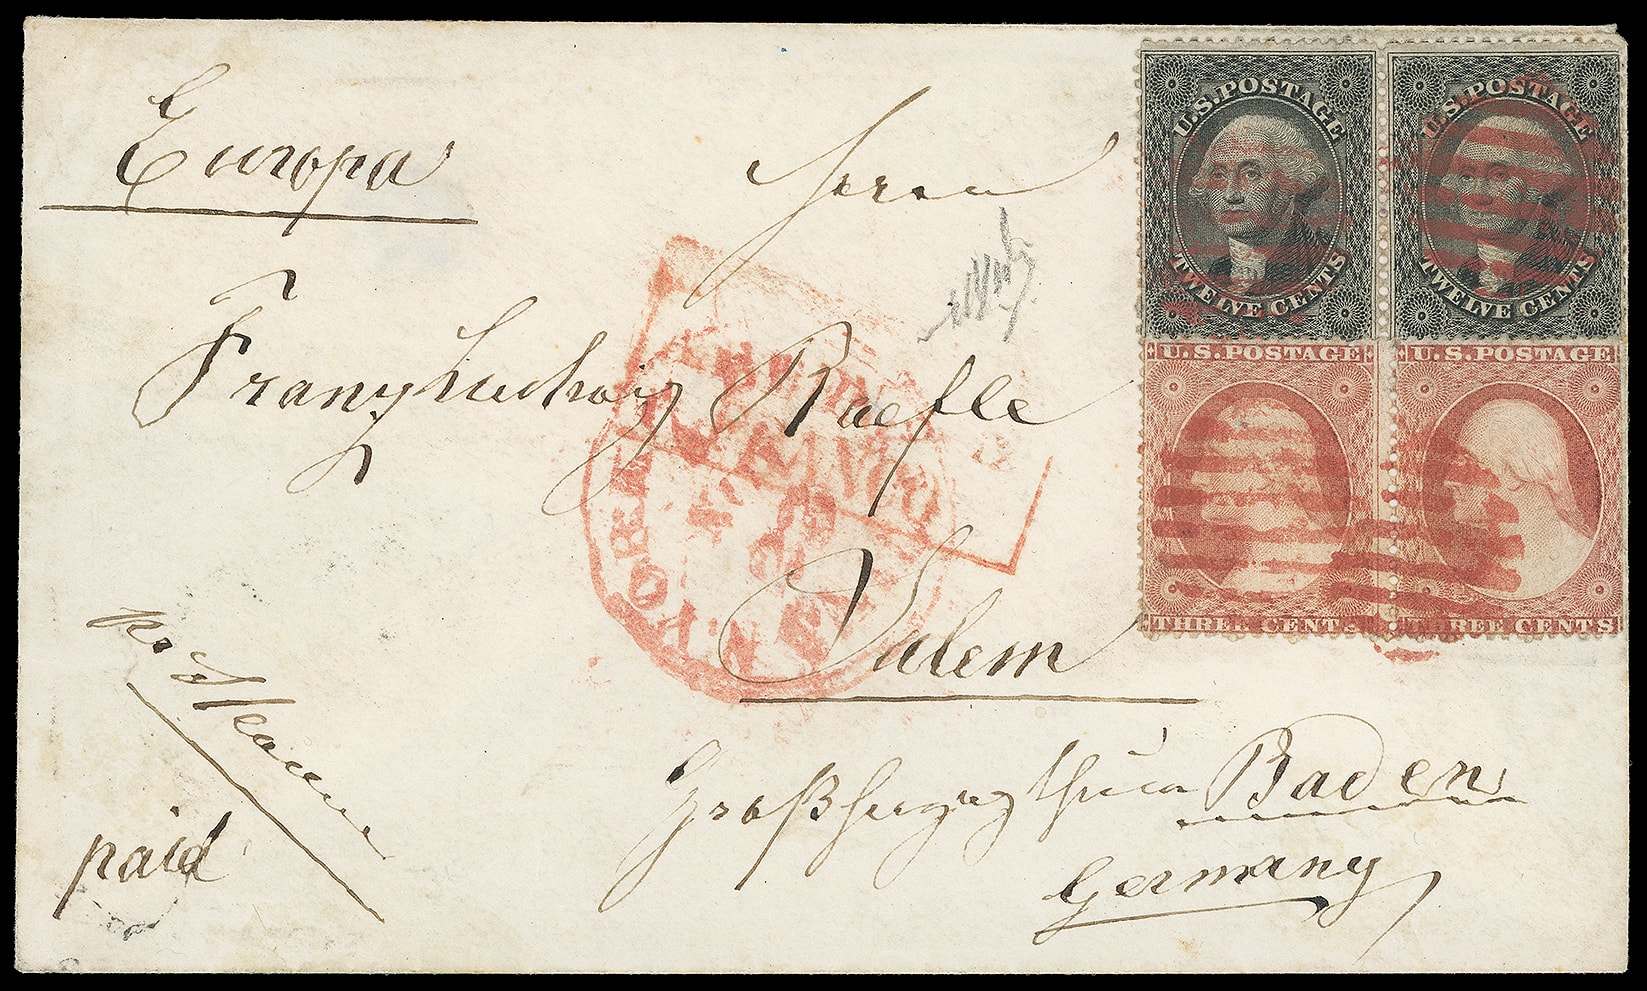 Europa
Herrn
Franz Ludwig Raefle
Salem
Großherzogthum Baden
Germany
pr Steamer
paid
U.S. POSTAGE
TWELVE CENTS
U.S. POSTAGE
TWELVE CENTS
U.S. POSTAGE
THREE CENTS
U.S. POSTAGE
THREE CENTS
N. YORK